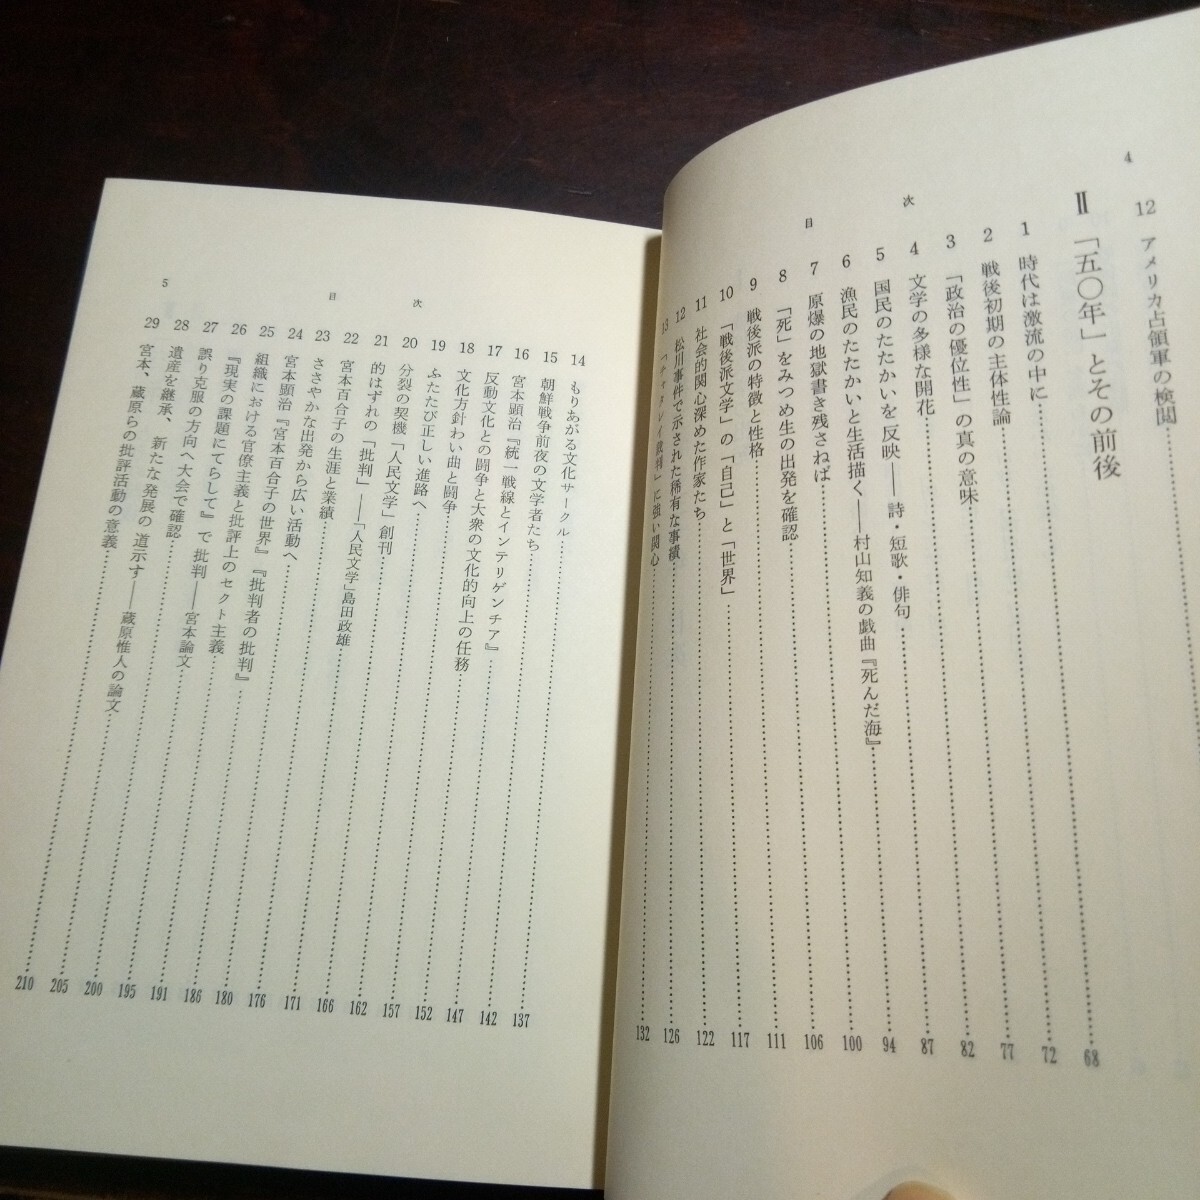 4
目 次
12 アメリカ占領軍の検閲
II 「五〇年」とその前後
1 時代は激流の中に 68
2 戦後初期の主体性論 72
3 「政治の優位性」の真の意味 77
4 文学の多様な開花 82
5 国民のたたかいを反映——詩・短歌・俳句 87
6 漁民のたたかいと生活描く——村山知義の戯曲『死んだ海』 94
7 原爆の地獄書き残さねば 100
8 「死」をみつめ生の出発を確認 106
9 戦後派の特徴と性格 111
10 「戦後派文学」の「自己」と「世界」 117
11 社会的関心深めた作家たち 122
12 松川事件で示された稀有な事績 126
13 「チャタレイ裁判」に強い関心 132
14 もりあがる文化サークル 137
15 朝鮮戦争前夜の文学者たち 142
16 宮本顕治『統一戦線とインテリゲンチア』 147
17 反動文化との闘争と大衆の文化的向上の任務 152
18 文化方針わい曲と闘争 157
19 ふたたび正しい進路へ 162
20 分裂の契機「人民文学」創刊 166
21 的はずれの「批判」——「人民文学」島田政雄 171
22 宮本百合子の生涯と業績 176
23 ささやかな出発から広い活動へ 180
24 宮本顕治『宮本百合子の世界』『批判者の批判』 186
25 組織における官僚主義と批評上のセクト主義 191
26 『現実の課題にてらして』で批判——宮本論文 195
27 誤り克服の方向へ大会で確認 200
28 遺産を継承、新たな発展の道示す——蔵原惟人の論文 205
29 宮本、蔵原らの批評活動の意義 210
目 次
5